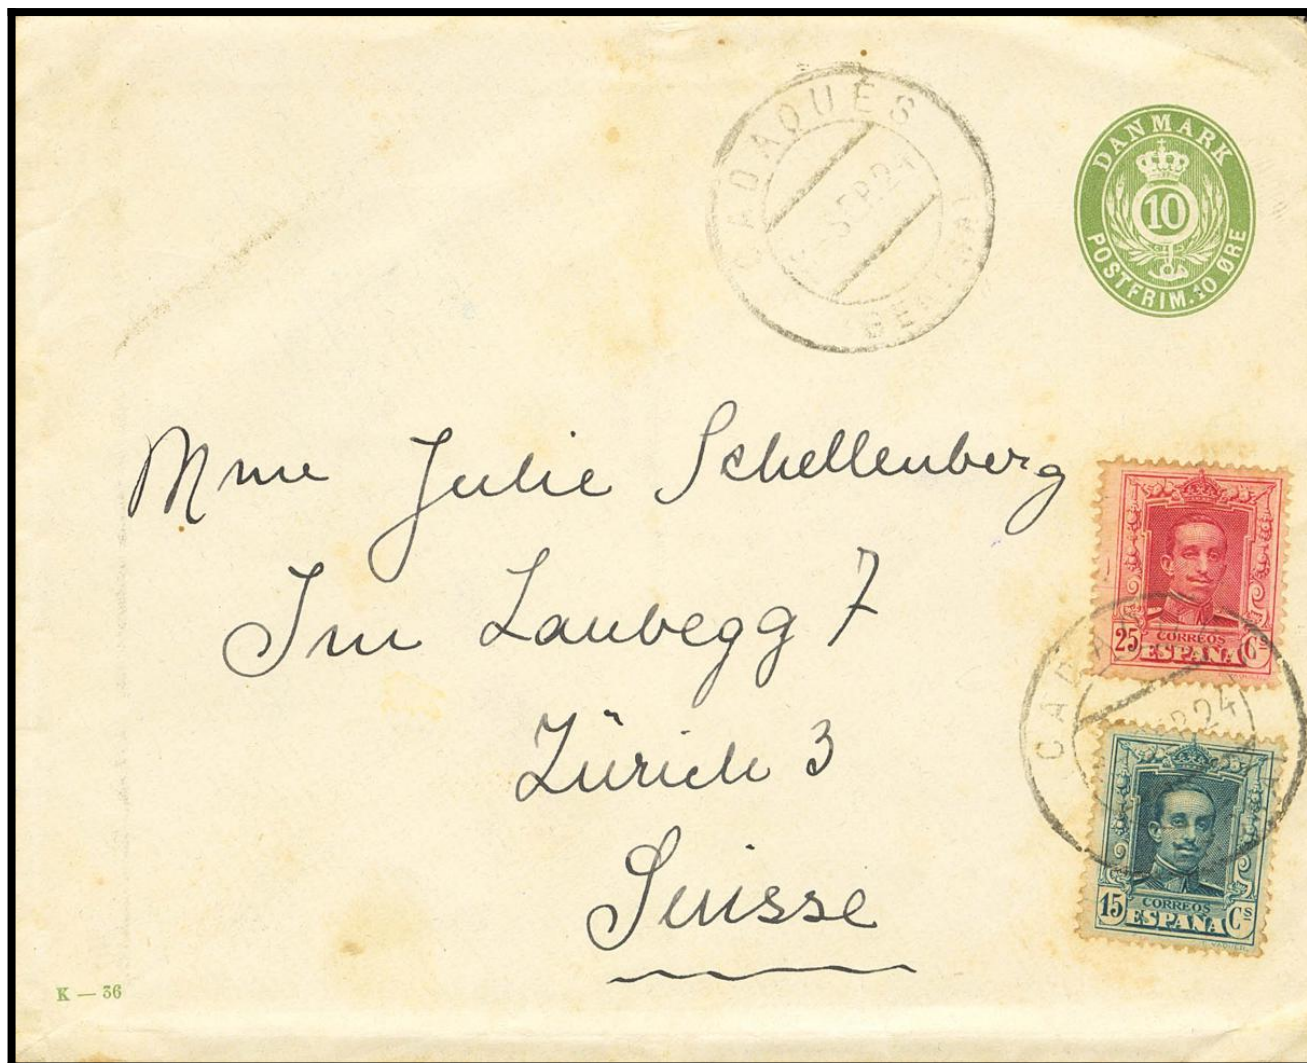 CADAQUÉS
SEP.24
DANMARK
10
POSTFRIM. 10 ØRE
Mme Julie Schellenberg
Im Laubegg 7
Zürich 3
Suisse
25 CORREOS Cs
ESPAÑA
24
15 CORREOS Cs
ESPAÑA
K — 36